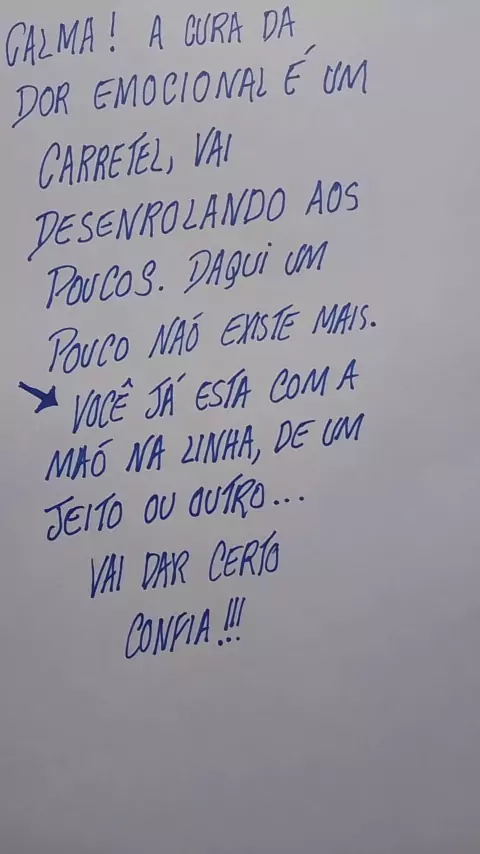 CALMA! A CURA DA
DOR EMOCIONAL É UM
CARRETEL, VAI
DESENROLANDO AOS
POUCOS. DAQUI UM
POUCO NAÓ EXISTE MAIS.
VOCÊ JÁ ESTA COM A
MAÓ NA LINHA, DE UM
JEITO OU OUTRO...
VAI DAR CERTO
CONFIA!!!